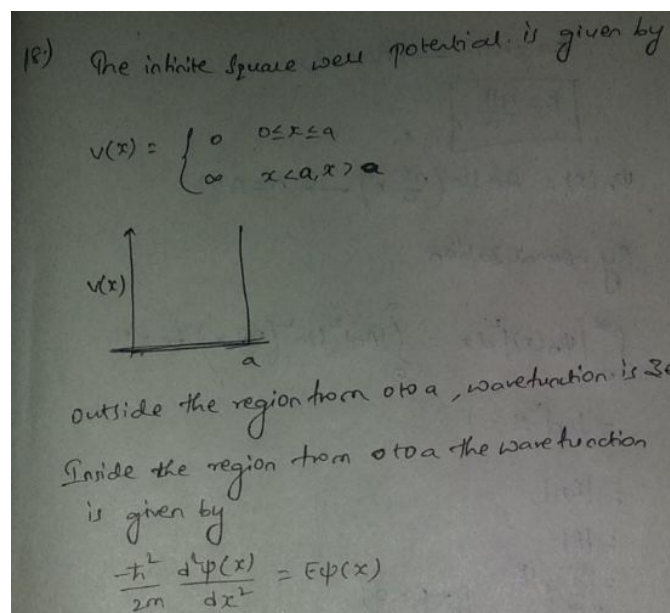 18.) The infinite square well potential is given by
V(x) = { 0 0≤x≤a
∞ x<a, x>a
V(x)
a
outside the region from 0 to a, wavefunction is
Inside the region from 0 to a the wavefunction
is given by
-ħ²/2m d²ψ(x)/dx² = Eψ(x)